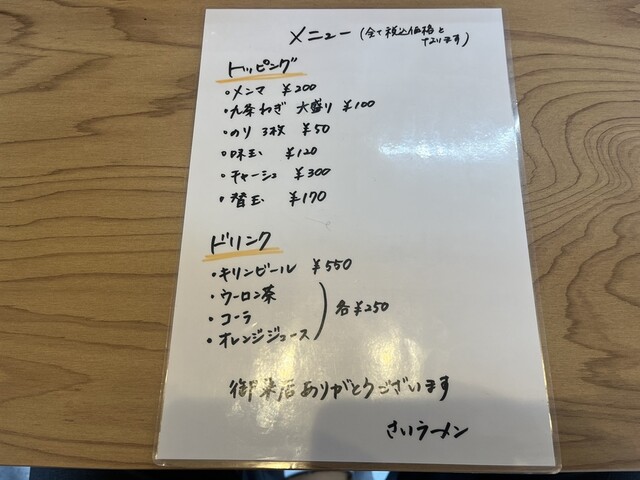 メニュー (全て税込価格と
なります)
トッピング
・メンマ ¥200
・九条ねぎ 大盛り ¥100
・のり 3枚 ¥50
・味玉 ¥120
・チャーシュ ¥300
・替玉 ¥170
ドリンク
・キリンビール ¥550
・ウーロン茶
・コーラ 各¥250
・オレンジジュース
御来店ありがとうございます
さいラーメン